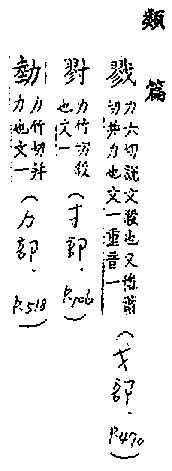 類篇
戮 力六切說文殺也又憐蕭切并力也文一重音一 (戈部．P.470)
力竹切殺也文一 (寸部．P.106)
勎 力竹切并力也文一 (力部．P.518)